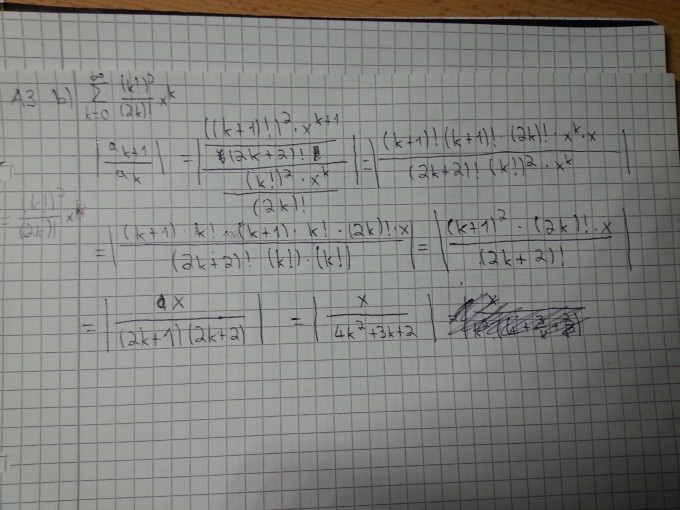 A3 b) ∑_{k=0}^{∞} (k!)²/(2k)! x^k
|a_{k+1}/a_k| = |(((k+1)!)² · x^{k+1}/(2k+2)!)/((k!)² · x^k/(2k)!)| = |((k+1)! (k+1)! · (2k)! · x^k · x)/((2k+2)! (k!)² · x^k)|
= (k!)²/(2k)! x^k
= |((k+1) · k! · (k+1) · k! · (2k)! · x)/((2k+2)! (k!) · (k!))| = |((k+1)² · (2k)! · x)/((2k+2)!)|
= |x/((2k+1)(2k+2))| = |x/(4k²+3k+2)|